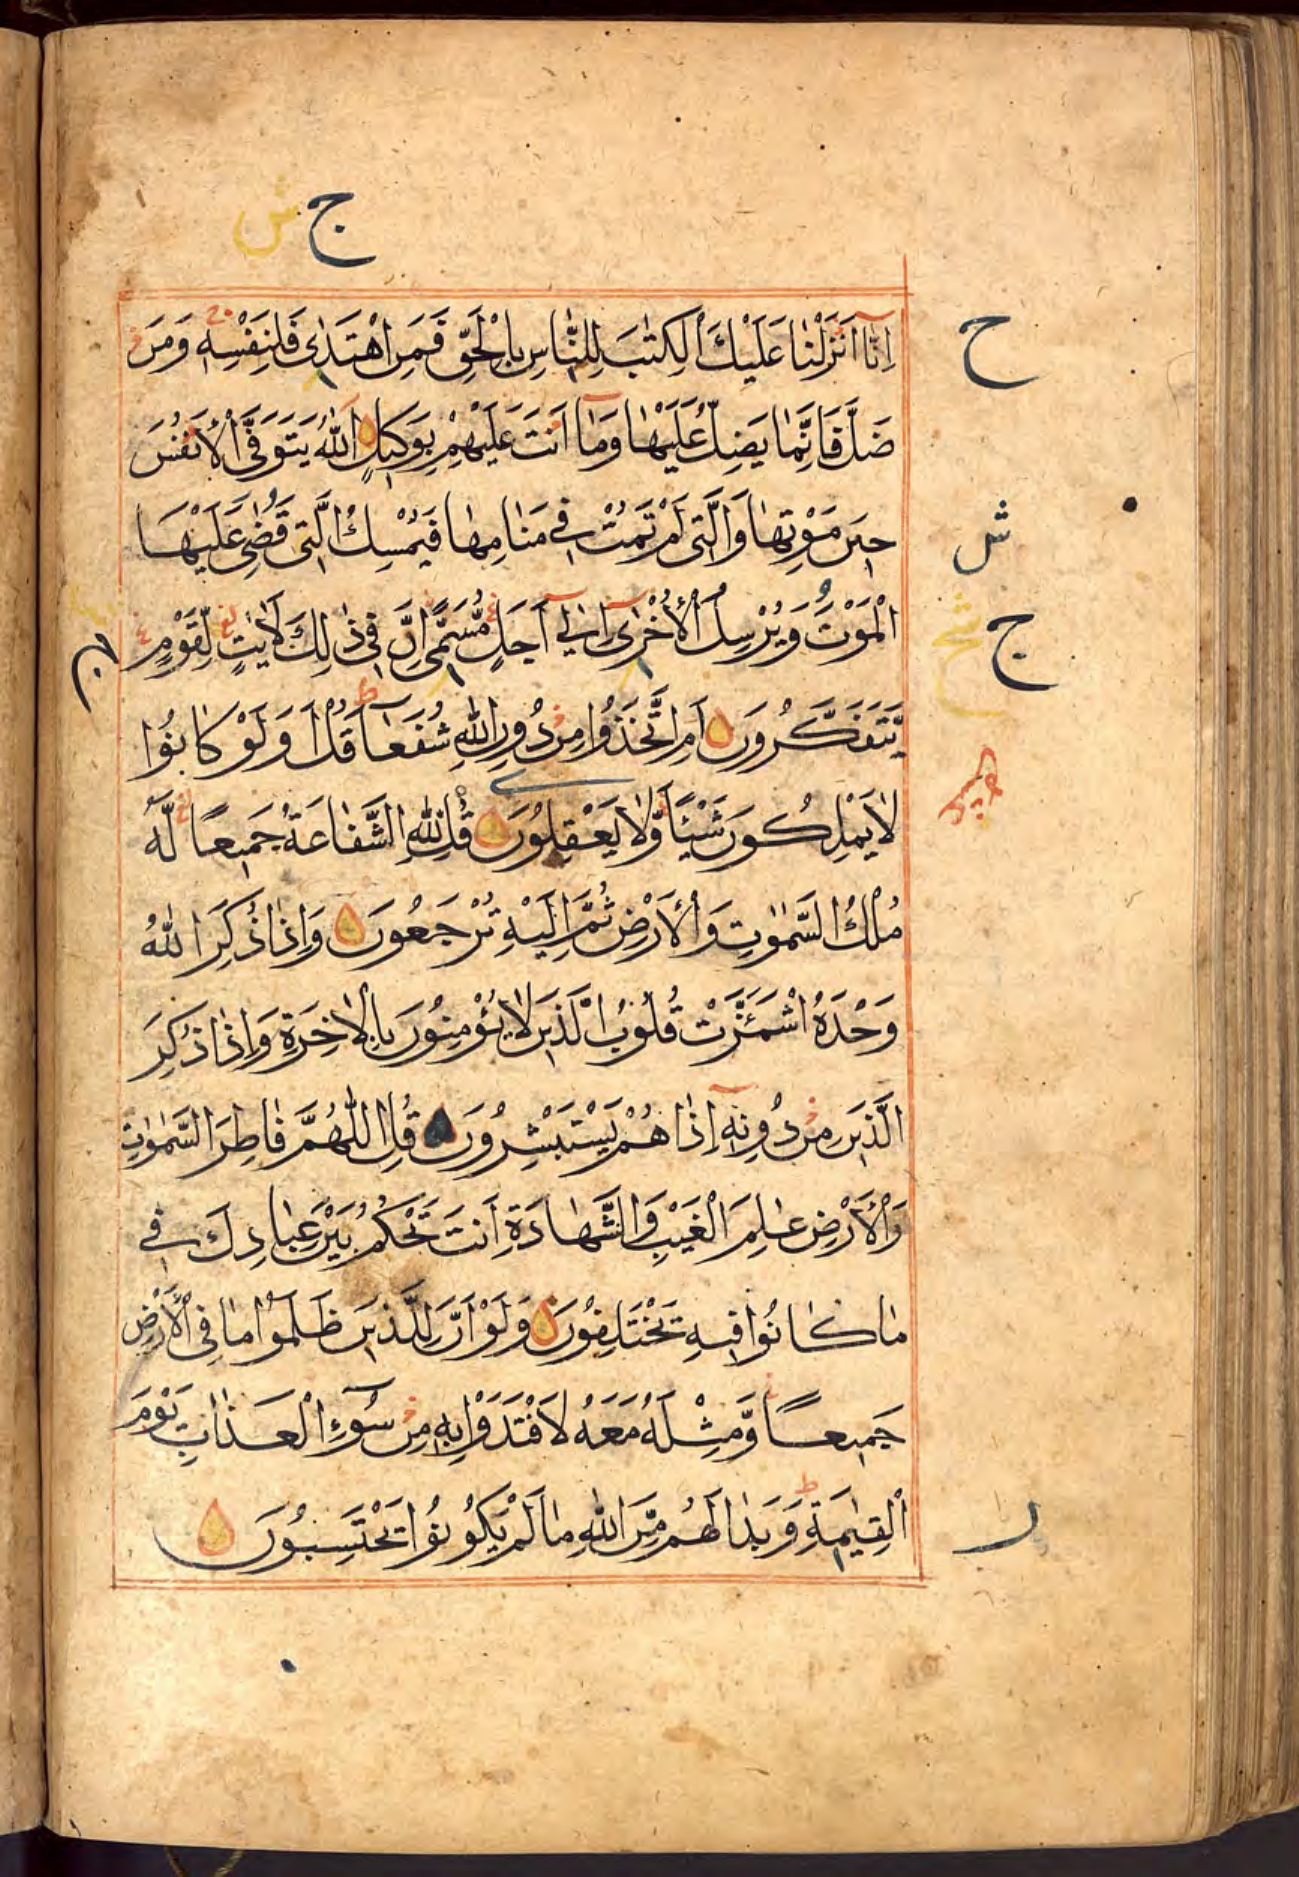 ج ش
اِنَّا اَنْزَلْنَا عَلَيْكَ الْكِتٰبَ لِلنَّاسِ بِالْحَقِّ فَمَنِ اهْتَدٰى فَلِنَفْسِهٖ وَمَنْ
ح
ضَلَّ فَاِنَّمَا يَضِلُّ عَلَيْهَا وَمَا اَنْتَ عَلَيْهِمْ بِوَكٖيلٍ اَللّٰهُ يَتَوَفَّى الْاَنْفُسَ
حٖينَ مَوْتِهَا وَالَّتٖى لَمْ تَمُتْ فٖى مَنَامِهَا فَيُمْسِكُ الَّتٖى قَضٰى عَلَيْهَا
ش
الْمَوْتَ وَيُرْسِلُ الْاُخْرٰى اِلٰى اَجَلٍ مُّسَمًّى اِنَّ فٖى ذٰلِكَ لَاٰيٰتٍ لِّقَوْمٍ
ج
يَّتَفَكَّرُونَ اَمِ اتَّخَذُوا مِنْ دُونِ اللّٰهِ شُفَعَآءَ قُلْ اَوَلَوْ كَانُوا
لَا يَمْلِكُونَ شَيْئًا وَّلَا يَعْقِلُونَ قُلْ لِلّٰهِ الشَّفَاعَةُ جَمٖيعًا لَهُ
مُلْكُ السَّمٰوٰتِ وَالْاَرْضِ ثُمَّ اِلَيْهِ تُرْجَعُونَ وَاِذَا ذُكِرَ اللّٰهُ
وَحْدَهُ اشْمَئَزَّتْ قُلُوبُ الَّذٖينَ لَا يُؤْمِنُونَ بِالْاٰخِرَةِ وَاِذَا ذُكِرَ
الَّذٖينَ مِنْ دُونِهٖ اِذَا هُمْ يَسْتَبْشِرُونَ قُلِ اللّٰهُمَّ فَاطِرَ السَّمٰوٰتِ
وَالْاَرْضِ عَالِمَ الْغَيْبِ وَالشَّهَادَةِ اَنْتَ تَحْكُمُ بَيْنَ عِبَادِكَ فٖى
مَا كَانُوا فٖيهِ يَخْتَلِفُونَ وَلَوْ اَنَّ لِلَّذٖينَ ظَلَمُوا مَا فِى الْاَرْضِ
جَمٖيعًا وَّمِثْلَهُ مَعَهُ لَافْتَدَوْا بِهٖ مِنْ سُوٓءِ الْعَذَابِ يَوْمَ
الْقِيٰمَةِ وَبَدَا لَهُمْ مِّنَ اللّٰهِ مَا لَمْ يَكُونُوا يَحْتَسِبُونَ
ر